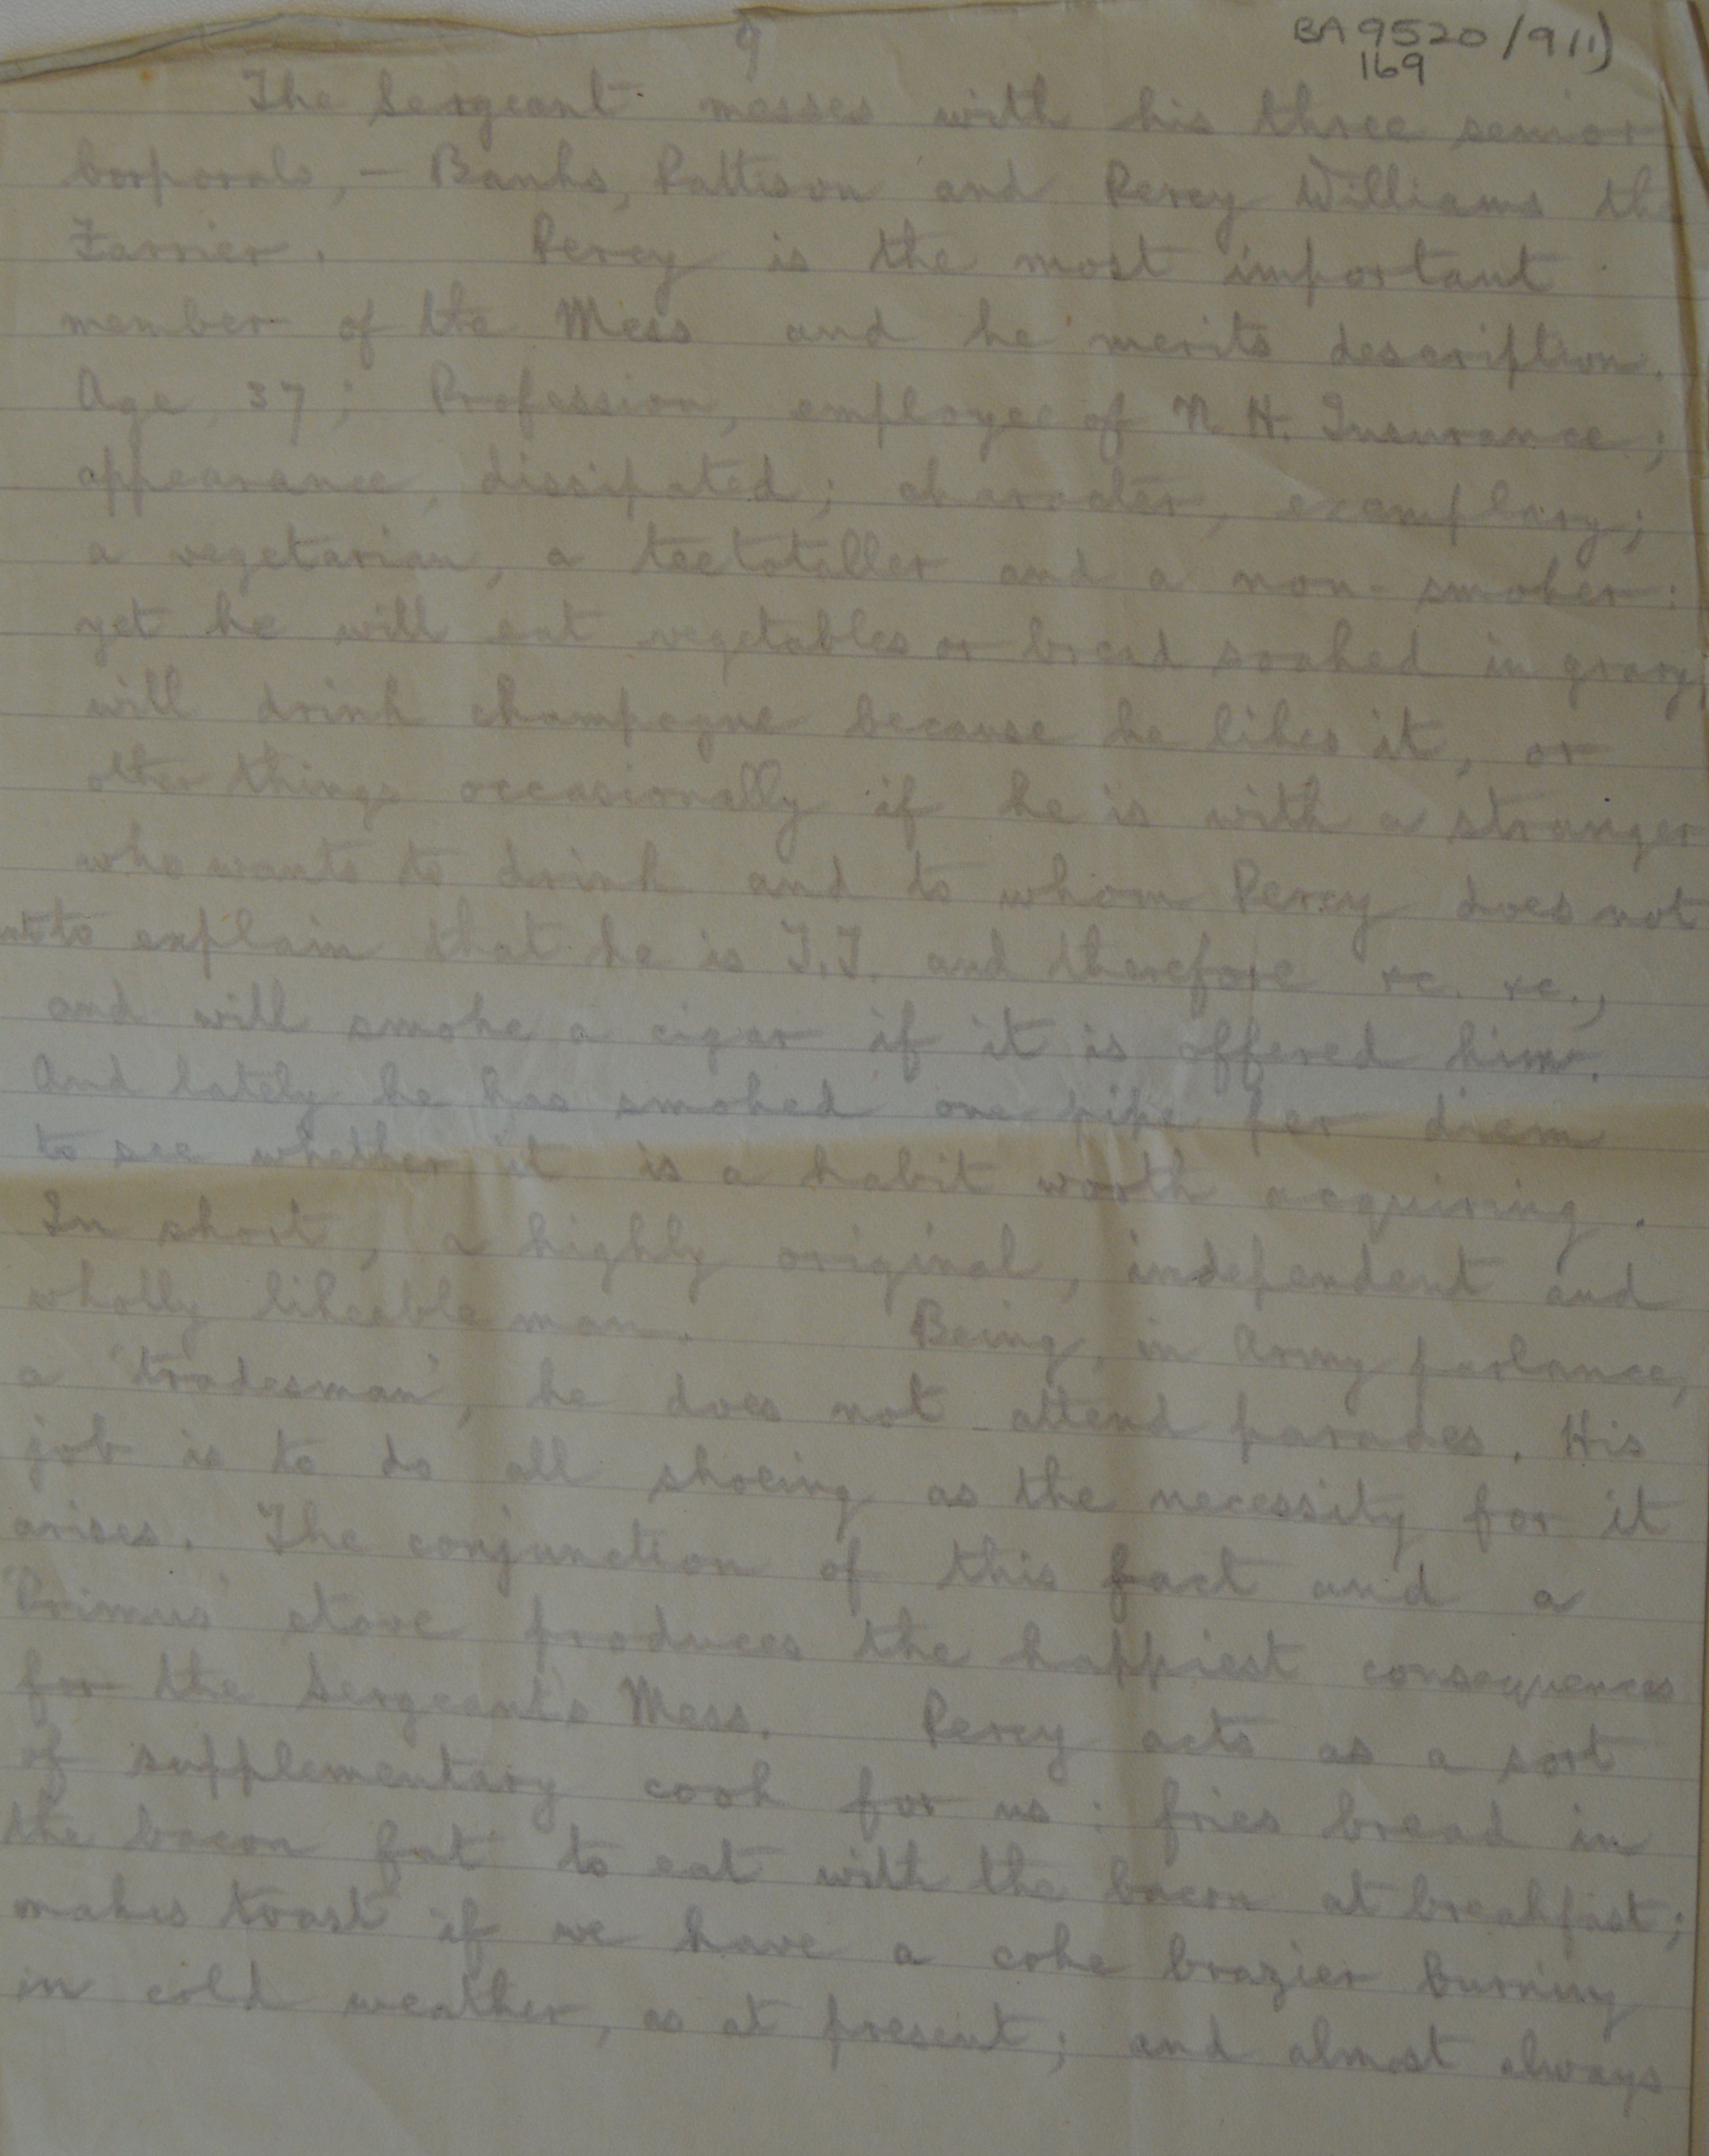 9
BA 9520/9(1)
169
The Sergeant messes with his three senior
Corporals, – Banks, Pattison and Percy Williams th
Farrier. Percy is the most important
member of the Mess and he merits description.
Age, 37; Profession, employee of N. H. Insurance;
appearance, dissipated; character, exemplary;
a vegetarian, a teetotaller and a non-smoker:
yet he will eat vegetables or bread soaked in gravy;
will drink champagne because he likes it, or
other things occasionally if he is with a stranger
who wants to drink and to whom Percy does not
to explain that he is T.T. and therefore &c. &c.,
and will smoke a cigar if it is offered him.
And lately he has smoked one pipe per diem
to see whether it is a habit worth acquiring.
In short, a highly original, independent and
wholly likeable man. Being, in Army parlance,
a 'tradesman', he does not attend parades. His
job is to do all shoeing as the necessity for it
arises. The conjunction of this fact and a
'Primus' stove produces the happiest consequences
for the Sergeant's Mess. Percy acts as a sort
of supplementary cook for us: fries bread in
the bacon fat to eat with the bacon at breakfast;
makes toast if we have a coke brazier burning
in cold weather, as at present; and almost always